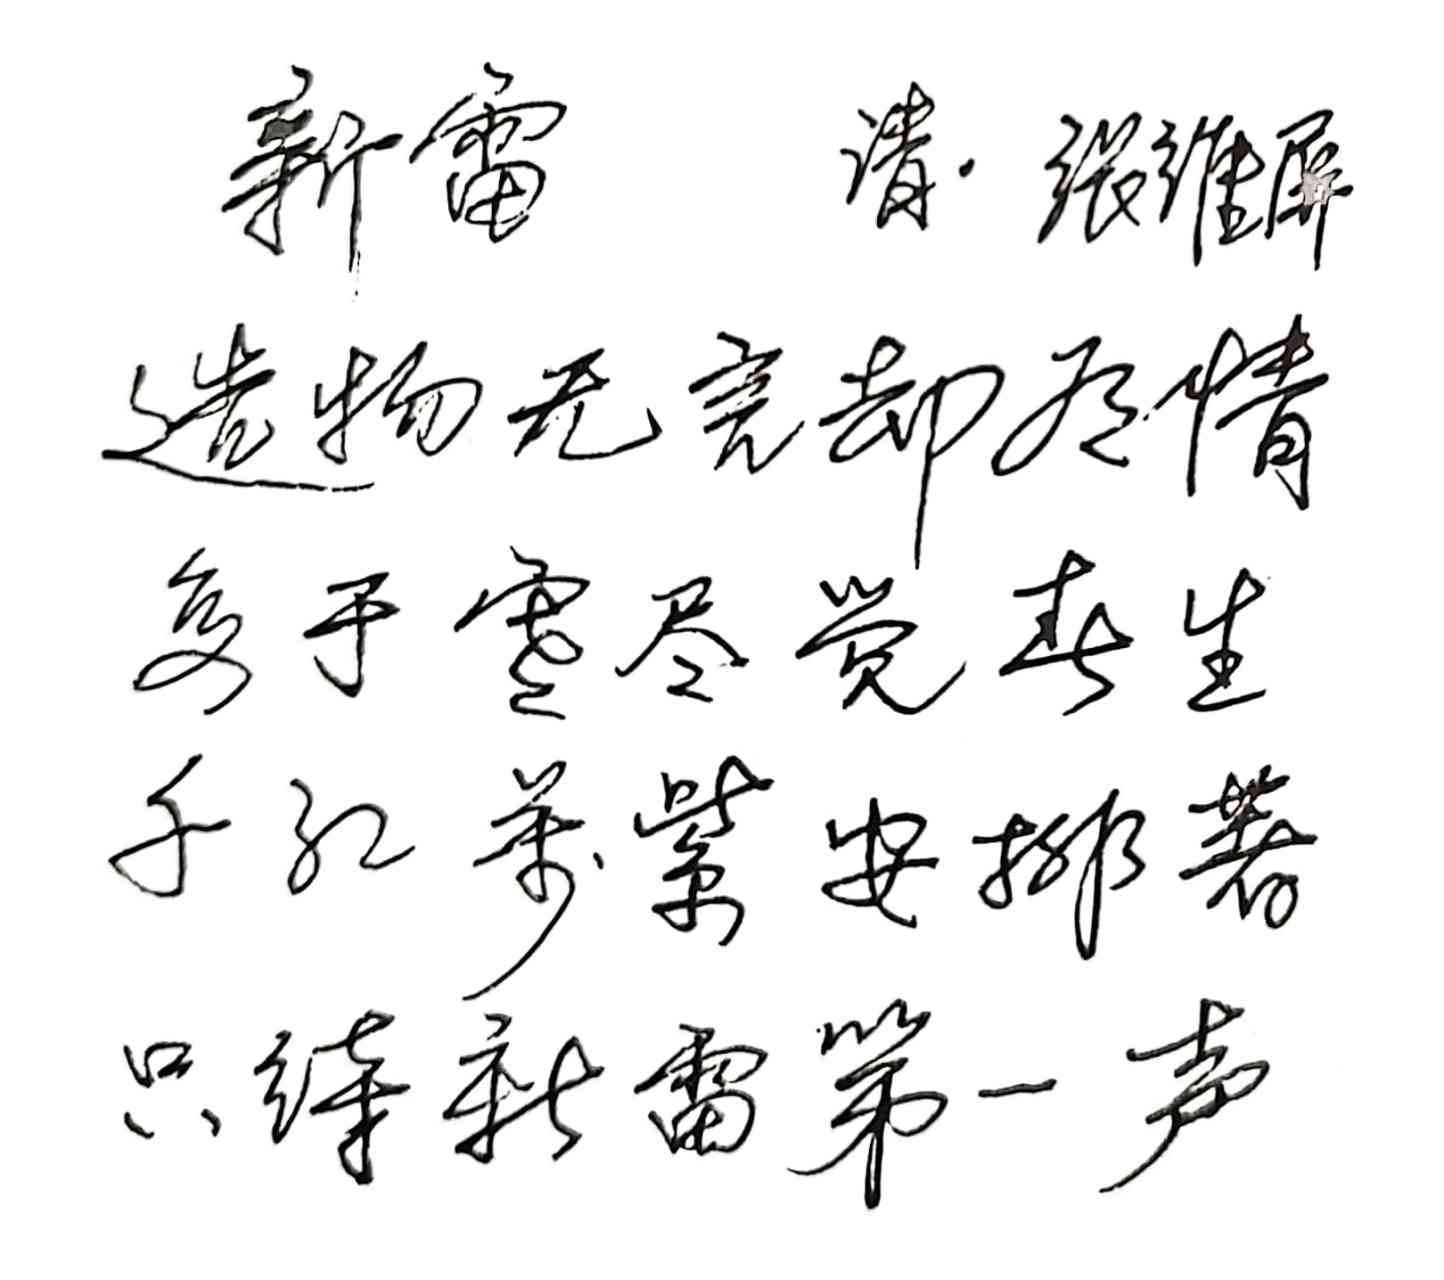 新雷 清·张维屏
造物无言却有情
每于寒尽觉春生
千红萬紫安排著
只待新雷第一声